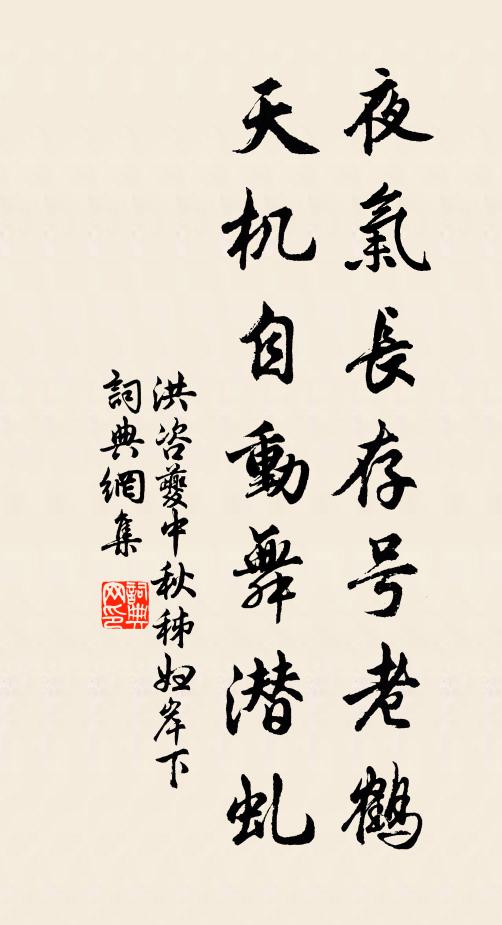 夜氣長存号老鶴
天机自動舞潜虬
洪咨夔中秋秭婦岸下
詞典網集
詞典网印